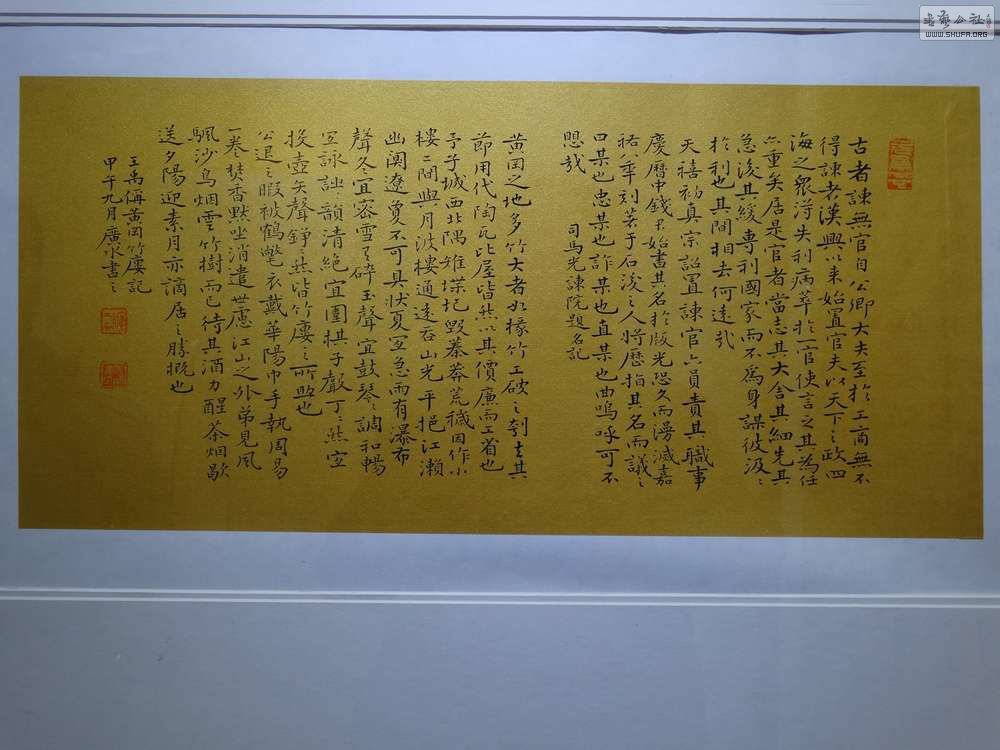 古者諫無官自公卿大夫至於工商無不
得諫者漢興以來始置官夫以天下之政四
海之眾得失利病萃於一官使言之其為任
亦重矣居是官者當志其大舍其細先其
急後其緩專利國家而不為身謀彼汲〻
於利也其間相去何遠哉
天禧初真宗詔置諫官六員責其職事
慶曆中錢君始書其名於版光恐久而漫滅嘉
祐八年刻著于石後之人將歷指其名而議之
曰某也忠某也詐某也直某也曲嗚呼可不
思哉 司馬光諫院題名記
黃岡之地多竹大者如椽竹工破之刳去其
節用代陶瓦比屋皆然以其價廉而工省也
予子城西北隅雉堞圮毀蓁莽荒穢因作小
樓二間與月波樓通遠吞山光平挹江瀨
幽闃遼敻不可具狀夏宜急雨有瀑布
聲冬宜密雪有碎玉聲宜鼓琴〻調和暢
宜詠詩韻清絕宜圍棋子聲丁〻然宜
投壺矢聲錚〻然皆竹廔之所助也
公退之暇被鶴氅衣戴華陽巾手執周易
一卷焚香默坐消遣世慮江山之外第見風
颿沙鳥烟雲竹樹而已待其酒力醒茶烟歇
送夕陽迎素月亦謫居之勝概也
王禹偁黃岡竹廔記
甲午九月廣水書之
WWW.SHUFA.ORG